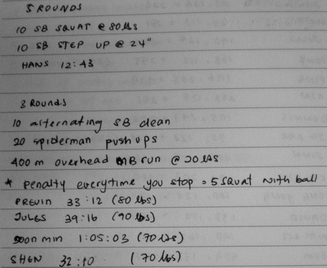 5 ROUNDS
10 SB SQUAT @ 80 lbs
10 SB STEP UP @ 24"
HANS 12:43
3 ROUNDS
10 alternating SB clean
20 spiderman push ups
400 m overhead MB run @ 20 LBS
* penalty everytime you stop = 5 squat with ball
33:12 (80 lbs)
JULES 39:16 (90 lbs)
soon min 1:05:03 (70 lbs)
SHEN 32:10 (70 lbs)